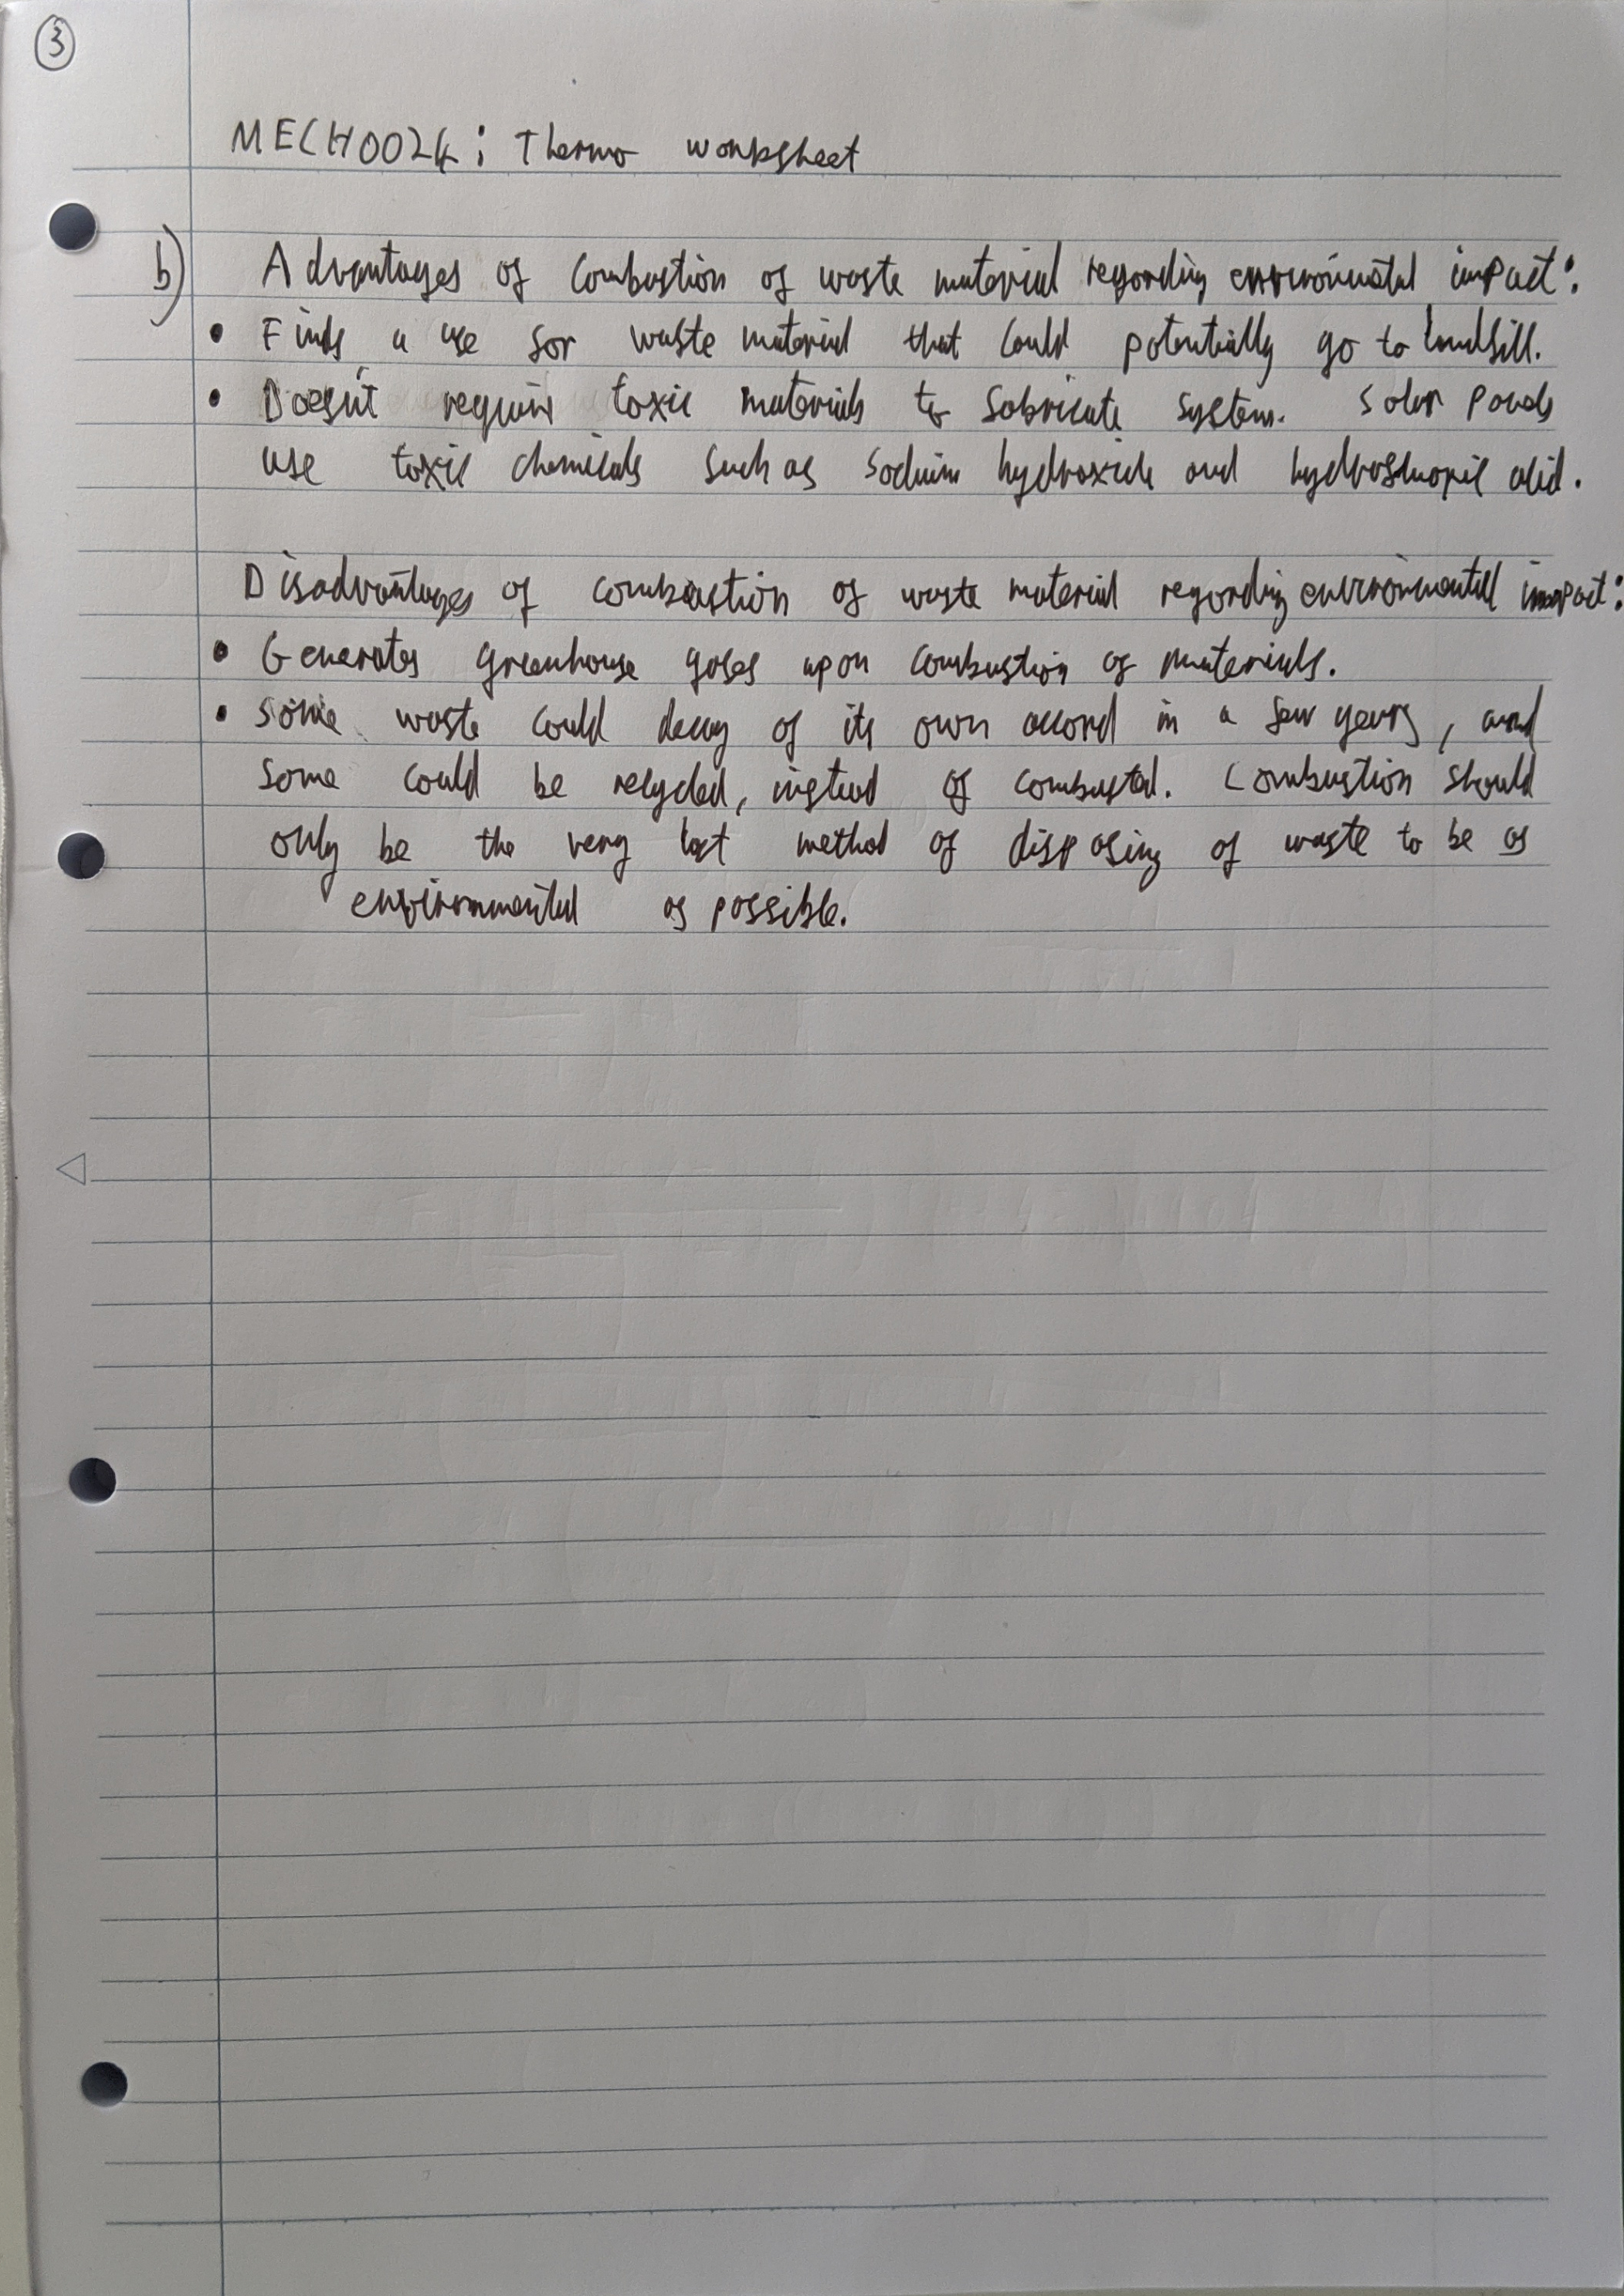 3
MECH0024: Thermo worksheet
b) Advantages of combustion of waste material regarding environmental impact:
• Finds a use for waste material that could potentially go to landfill.
• Doesn't require toxic materials to fabricate system. Solar ponds
use toxic chemicals such as sodium hydroxide and hydrofluoric acid.
Disadvantages of combustion of waste material regarding environmental impact:
• Generates greenhouse gases upon combustion of materials.
• Some waste could decay of its own accord in a few years, and
some could be recycled, instead of combusted. Combustion should
only be the very last method of disposing of waste to be as
environmental as possible.